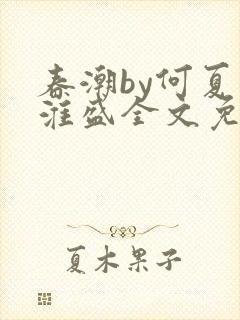 春潮by何夏
淮盛全文免
夏木果子